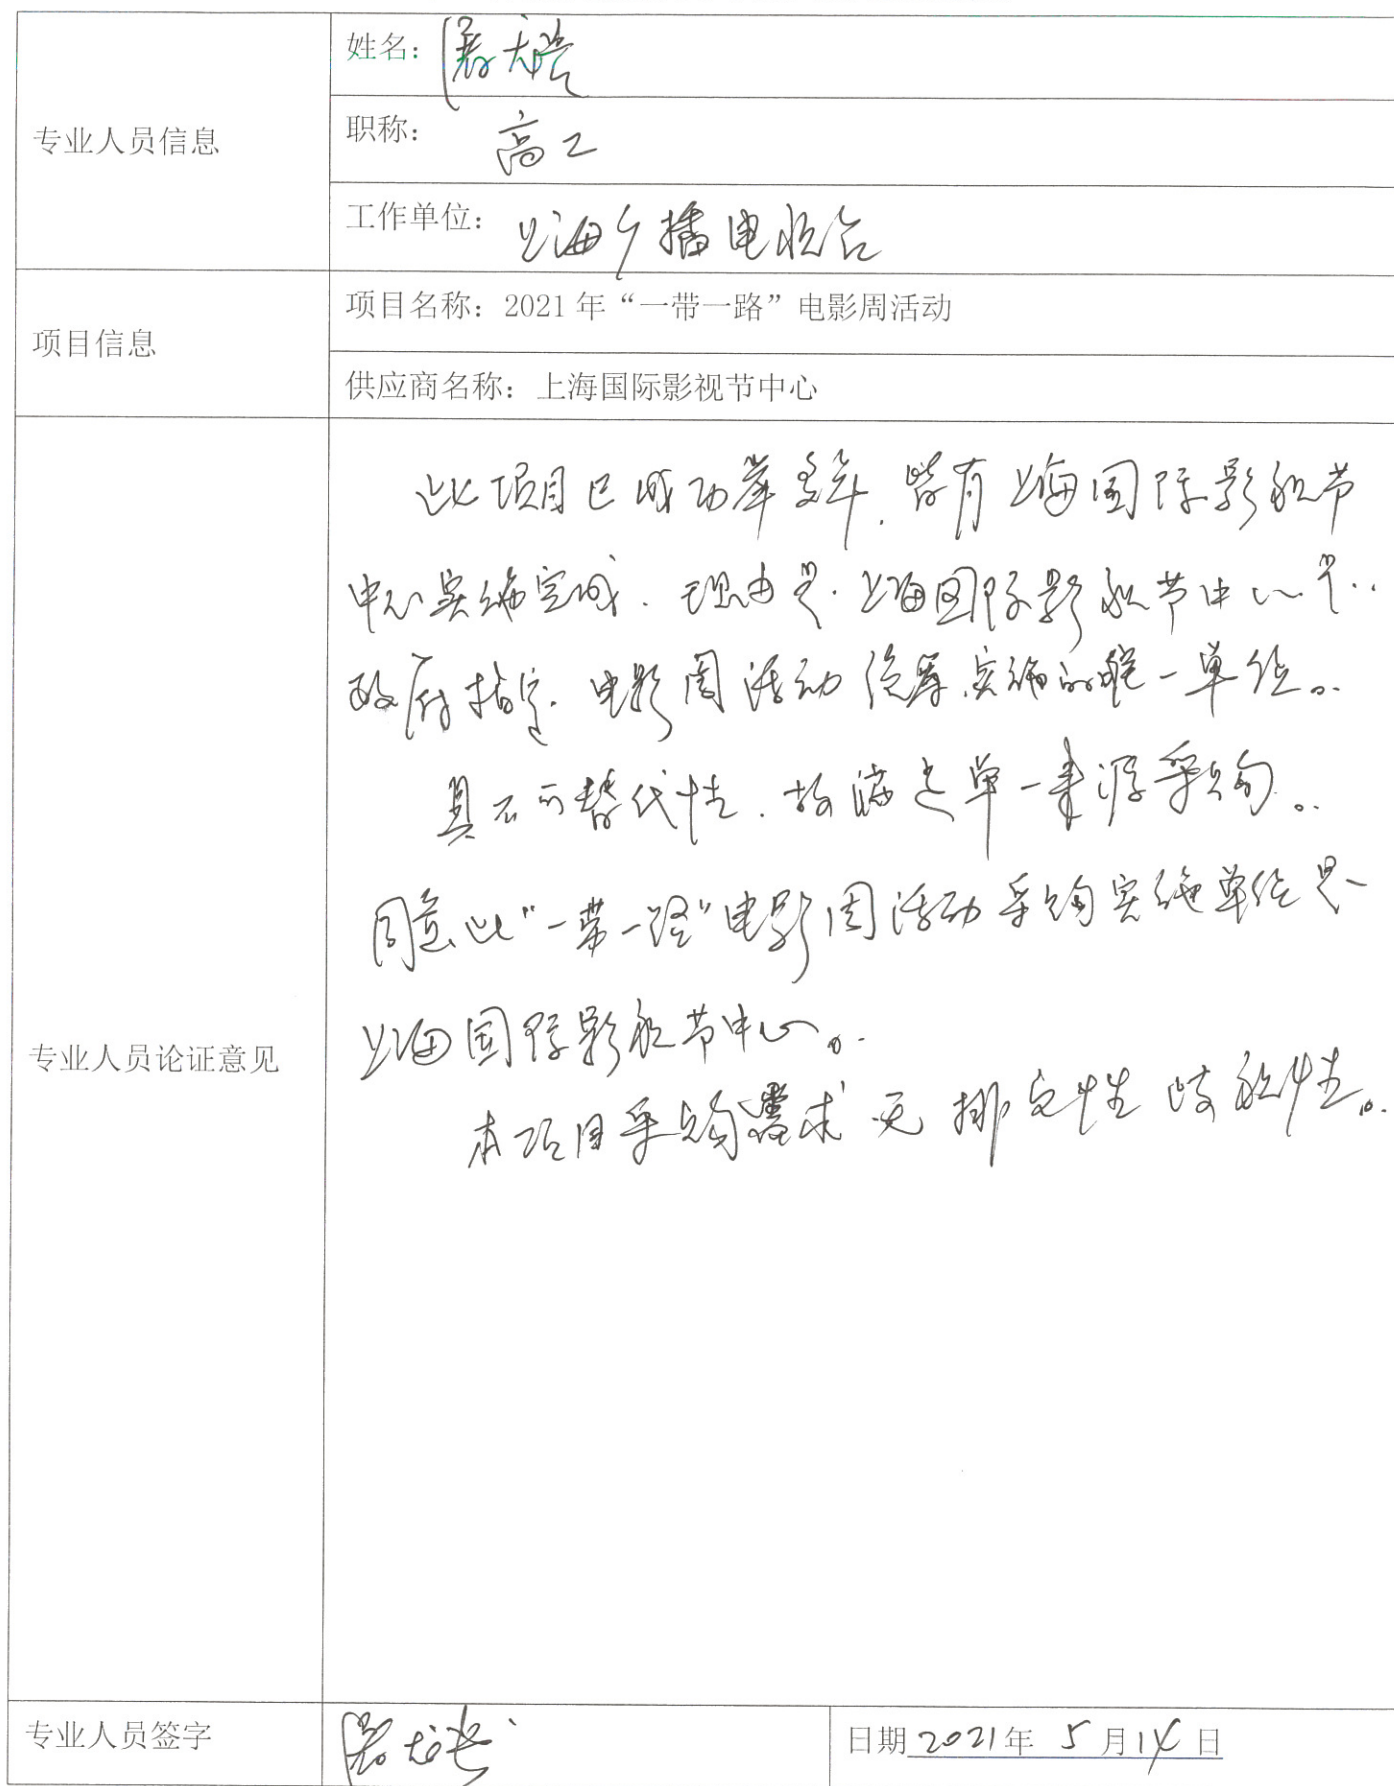 专业人员信息
姓名：
职称： 高工
工作单位： 上海广播电视台
项目信息
项目名称：2021年“一带一路”电影周活动
供应商名称：上海国际影视节中心
专业人员论证意见
此项目已成功举多年，皆有上海国际影视节
中心实施完成．理由是．上海国际影视节中心是
政府指定．电影周活动统筹实施的唯一单位。
具不可替代性．故满足单一来源采购。
同意此“一带一路”电影周活动采购实施单位是
上海国际影视节中心。
本项目采购需求无排它性歧视性。
专业人员签字
日期 2021年 5月14日